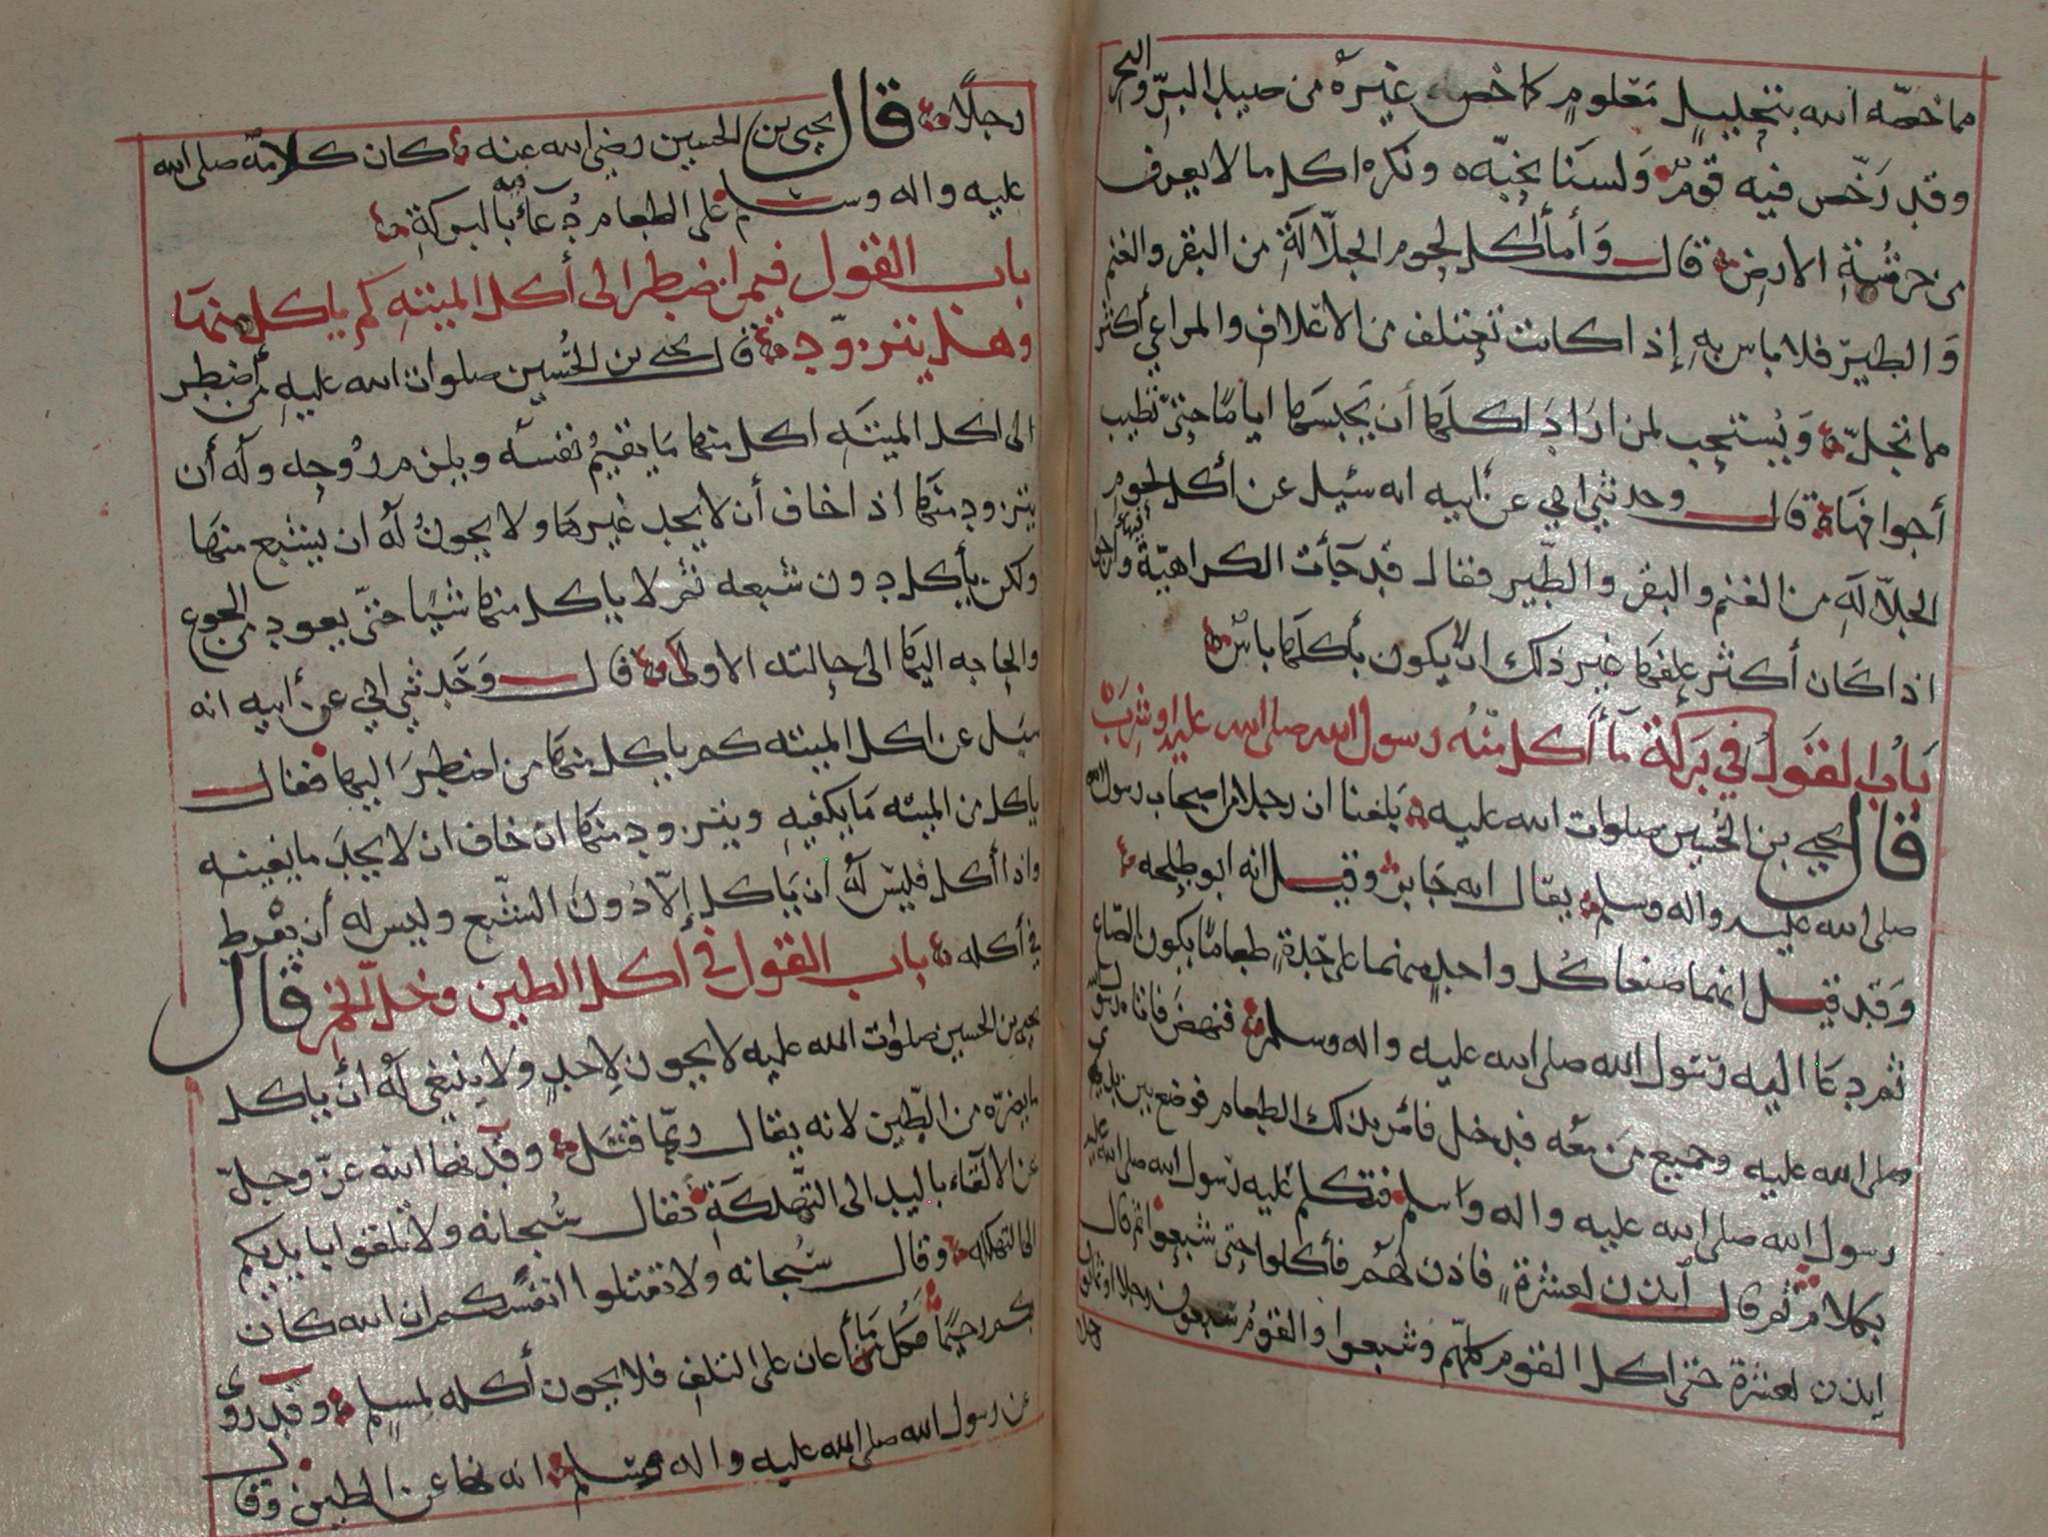 مما خصّه الله بتحليلٍ مَعلومٍ كما خُص غيرَه من صيد البرِّ والبحرِ
وقد رَخّص فيه قومٌ وَلسنا نحبّه ونكره اكل ما لا يعرف
من خرشة الارض قال وَأما أكل لحوم الجلّالَةِ من البقر والغنم
وَالطير فلا باس بهِ إذا كانت تختلف من الاعلاف والمراعي أكثر
مما تجلّ وَيُستحب لمن ارَادَ اكلهَا أن يَحبسهَا اياما حتىّ تطيب
أجوافهَا قال وحدثني ابي عن أبيه انه سئيل عن أكل لحوم
الجلّالَهِ من الغنم والبقر والطّير فقال قد جَأت الكراهيّة فيها وأرجو
اذا كَان أكثر علفهَا غير ذلك الّا يكون بأكلهَا باسٌ
بَابُ القَولُ في بَركة مَا أكل منْهُ رسول الله صلى الله عليه اوشَرِبَ
قال يحيى بن الحُسين صلوات الله عليه بَلغنا ان رجلا من اصحاب رسول الله
صلى الله عليه واله وسلم يقال انه جَابرٌ وقيل انه ابو طلحه
وَقد قيل انهما صنعا كُل واحدٍ منهما على حِدةٍ طعامًا يكون الصّاع
ثم دعَا اليه رَسُول الله صلى الله عليه واله وسلم فنهضَ فاتاه رسول
صلى الله عليه وجميع مَن معه فدخل فأمر بذلك الطعام فوضع بين يدي
رسول الله صلى الله عليه واله وسلم فتكلم عَليه رَسول الله صلى الله عليه
بكلام ثم قال ايذن لعشرةٍ فاذن لهُم فأكلوا حتى شبعوا ثم قال
ايذن لعشرة حتى اكل القوم كلهّم وشبعوا والقومُ سَبعون رجلا او ثمانون
رجلًا قال يحيى بن الحسين رضي الله عنه كان كلامهُ صلى الله
عليه واله وسلم على الطعام دُعآءٌ فيه بالبركةِ
باب القول فيمن اضطر الى أكل الميتهِ كم ياكل منهَا
وهل يتزوّد قال يحيى بن الحُسين صلوات الله عليهِ من أضطر
الى اكل الميتَهِ اكل منها مَا يقيمُ نفسَه ويلزم رُوحِه ولَه أن
يتزود منهَا اذا خاف أن لا يجد غيرهَا ولا يجوزُ لَه ان يشبع منهَا
ولكن يأكل دون شبعه ثم لا ياكل منها شيًا حتىّ يعود من الجوع
والحاجه اليهَا الى حالته الاولَى قال وَحَدثني ابي عن أبيه انه
سيل عن اكل الميته كم ياكل منهَا من اضطرَ اليها فقال
ياكل من الميته مَا يكفيهِ ويتزود منهَا ان خاف ان لا يجدَ ما يغنيه
واذا أكل فليس لَه ان يَاكل إلاّ دُونَ الشّبع وليس له أن يفرط
في أكله باب القول في اكل الطين وخلّ الخمر قال
يحيى بن الحسين صلوات الله عليه لا يجوز لِاحدٍ ولا ينبغي لَه أن ياكل
مايضرّه من الطّين لانه يقال ربمّا قتَل وقَد نها الله عزّ وجلّ
عن الالقاء باليد الى التهلكَةِ فَقال سُبحانه ولا تلقوا بايديكم
الى التهلكه وقال سُبحانه ولا تقتلوا انفسكم ان الله كان
بكم رحيمًا فكل مَا أعان على التلفِ فلا يجوز أكله لمسلمٍ وقَد روى
عن رسول الله صلى الله عليه واله وسلم انه نها عن الطين وقال